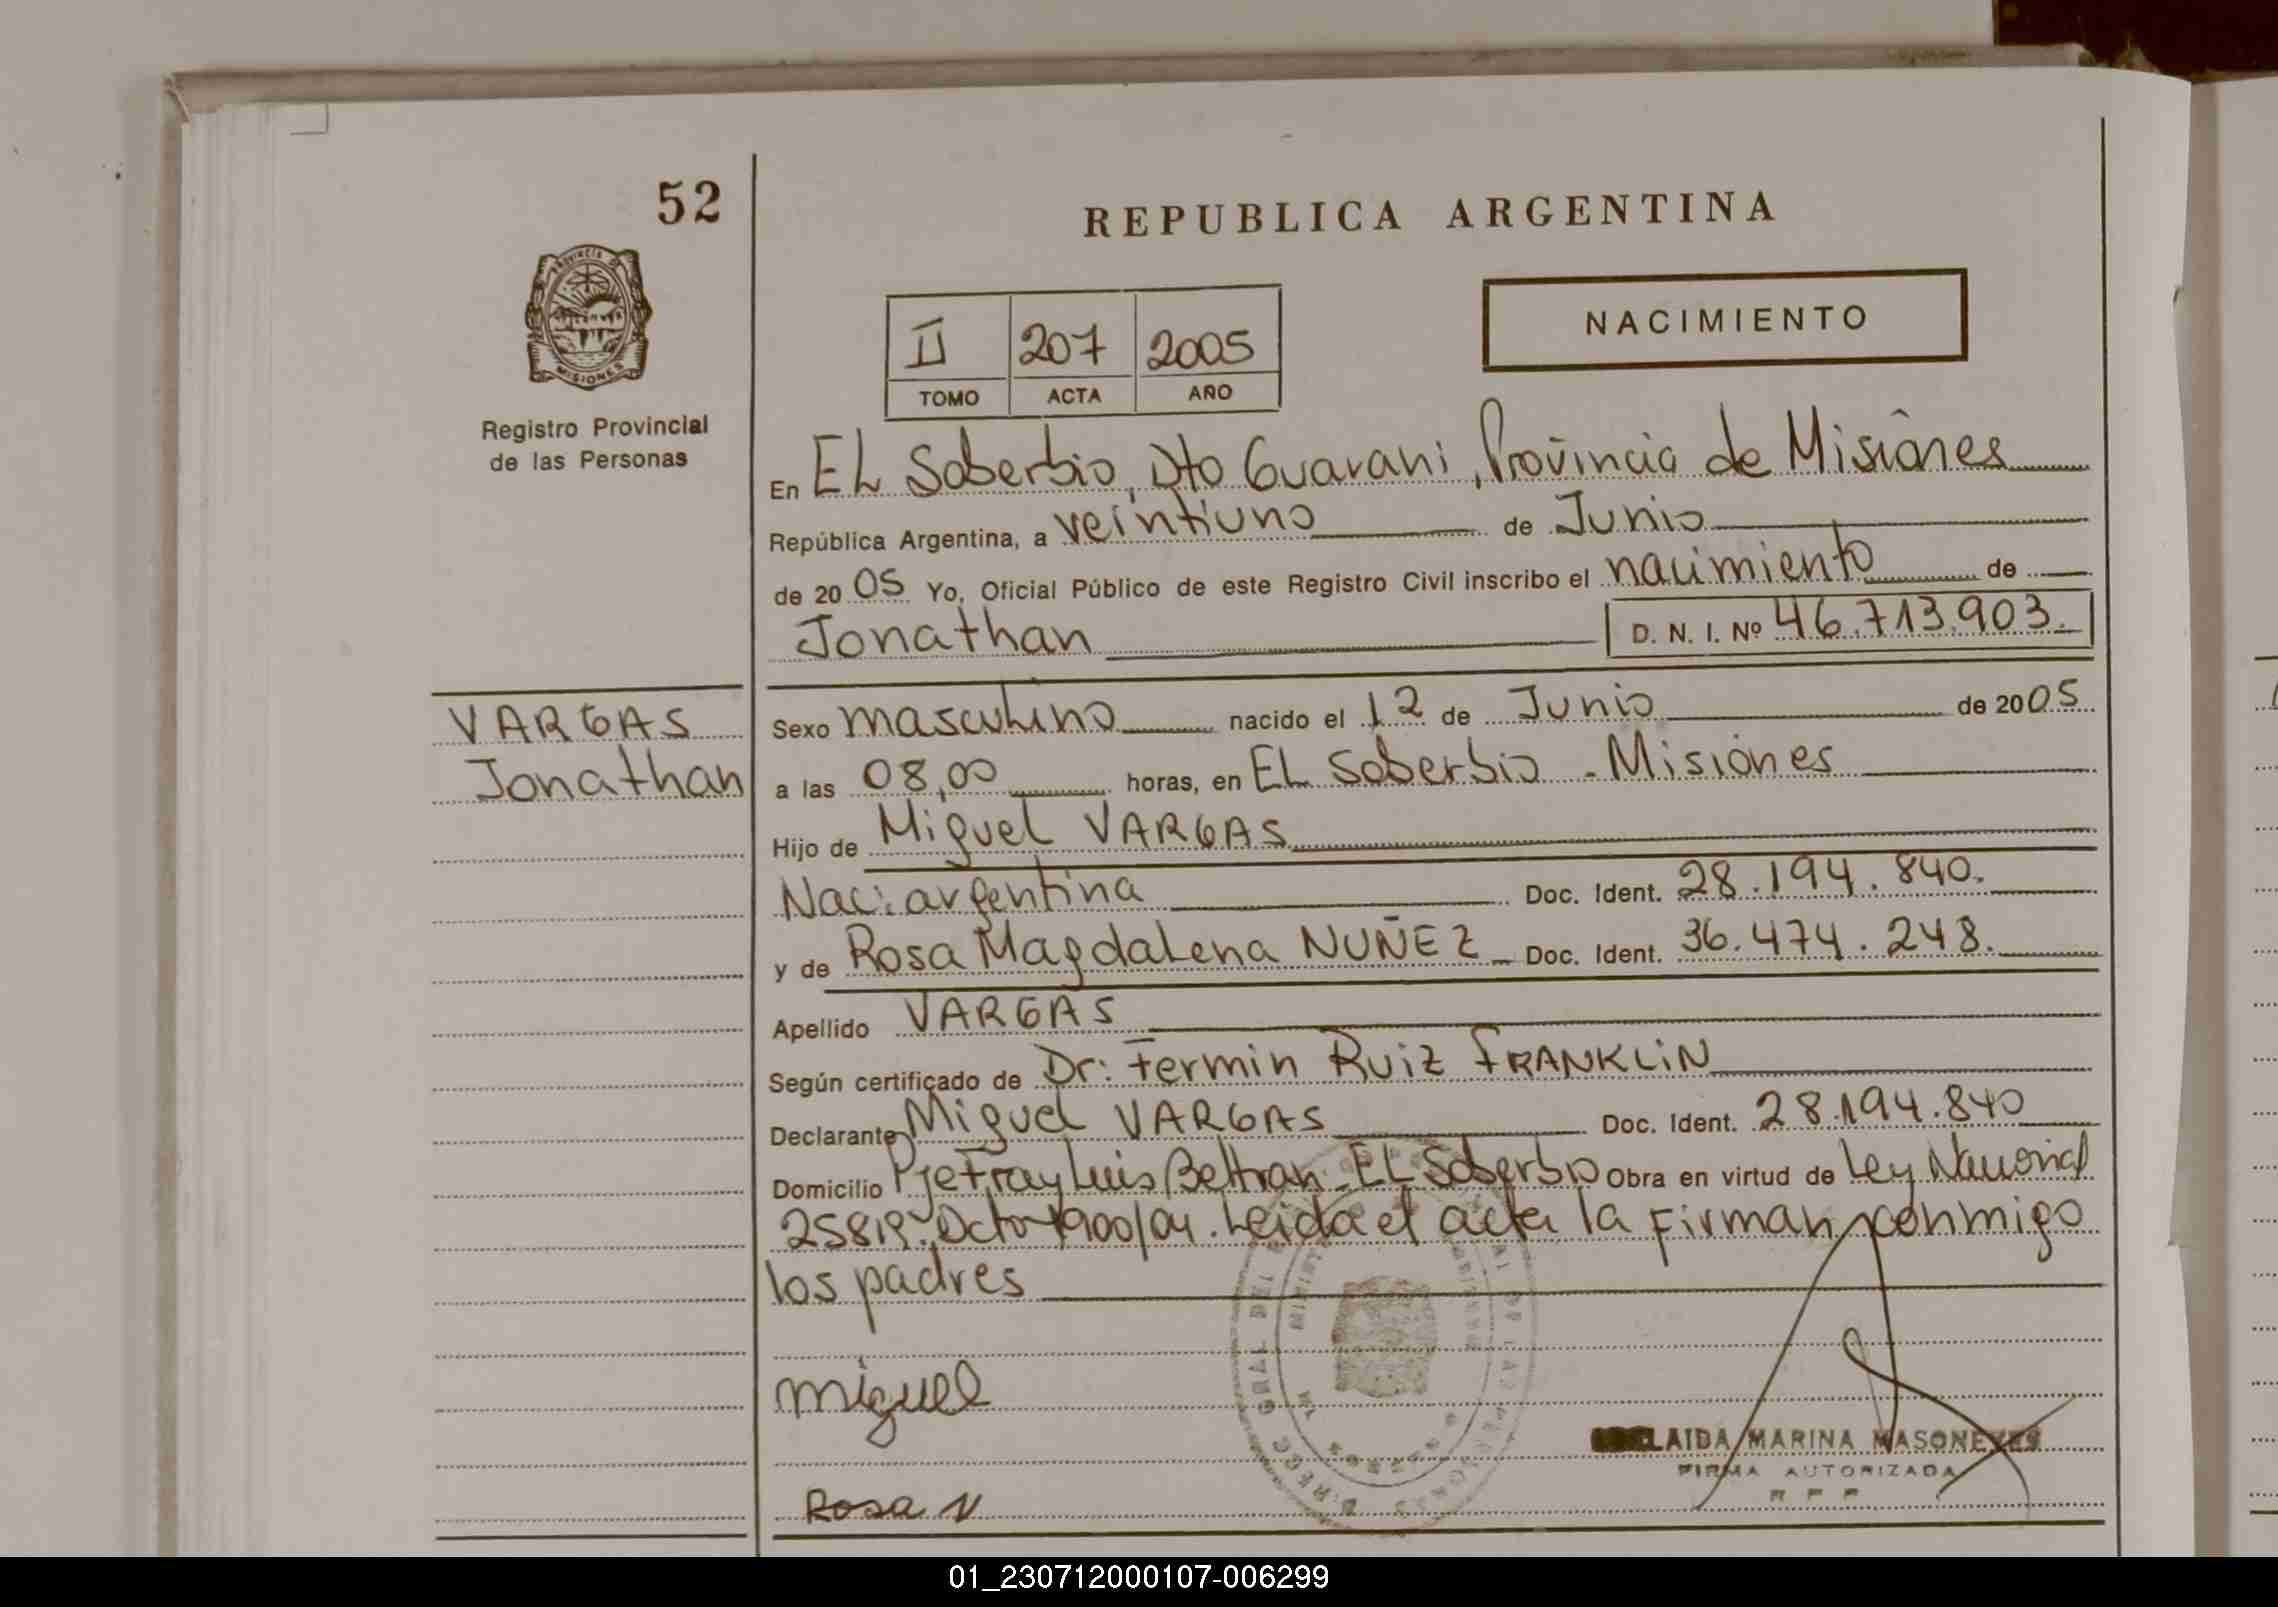 52
REPUBLICA ARGENTINA
PROVINCIA DE
MISIONES
Registro Provincial
de las Personas
II 207 2005
TOMO ACTA AÑO
NACIMIENTO
En EL Soberbio, Dto Guarani, Provincia de Misiones
República Argentina, a veintiuno de Junio
de 2005 Yo, Oficial Público de este Registro Civil inscribo el nacimiento de
Jonathan D. N. I. Nº 46.713.903.
VARGAS
Jonathan
Sexo masculino nacido el 12 de Junio de 2005
a las 08,00 horas, en EL Soberbio - Misiones
Hijo de Miguel VARGAS
Nac: argentina Doc. Ident. 28.194.840.
y de Rosa Magdalena NUÑEZ Doc. Ident. 36.474.248.
Apellido VARGAS
Según certificado de Dr: Fermin Ruiz FRANKLIN
Declarante Miguel VARGAS Doc. Ident. 28.194.840
Domicilio Pje Fray Luis Beltran - EL Soberbio Obra en virtud de Ley Nacional
25819. Dcto 1900/04. Leida el acta la firman conmigo
los padres
miguel
Rosa N
LAIDA MARINA MASONEVES
FIRMA AUTORIZADA
01_230712000107-006299